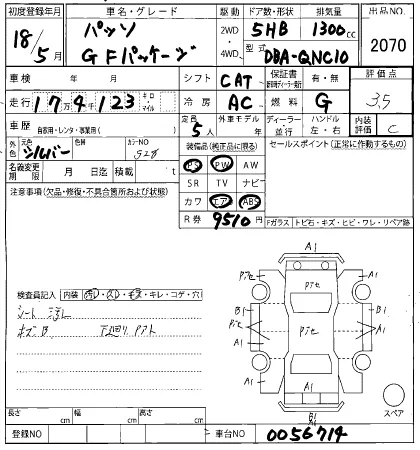 初度登録年月 車名・グレード 駆動 ドア数・形状 排気量 出品NO.
18/5月 パッソ 2WD 5HB 1300cc 2070
GFパッケージ 4WD 型式 DBA-QNC10
車検 年 月 シフト CAT 保証書 有・無 評価点
走行 17万4千123 キロ・マイル 冷房 AC 燃料 G 3.5
車歴 自家用・レンタ・事業用( ) 定員 5人 外車モデル 年 ディーラー・並行 ハンドル 左・右 内装評価 C
外色 元色 シルバー 色替 カラーNO S28 装備品(純正品に限る) セールスポイント(正常に作動するもの)
名義変更期限 月 日迄 積載 t PS PW AW
注意事項(欠品・修復・不具合箇所および状態) SR TV ナビ
カワ エアB ABS
R券 9510円 Fガラス トビ石・キズ・ヒビ・ワレ・リペア跡
A1
A1 A1
検査員記入 内装 汚レ・スレ・キズ・キレ・コゲ・穴
シート 汚レ
B1 B1
A1 A1
A1
B1
A1
スペア
長さ cm 幅 cm 高さ cm
登録NO 車台NO 0056714